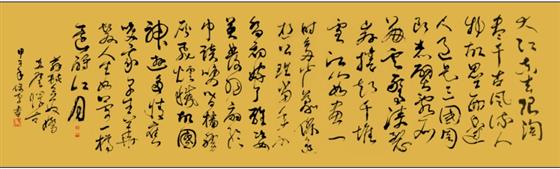 大江东去浪淘
尽千古风流人
物故垒西边
人道是三国周
郎赤壁乱石
崩云惊涛裂
岸捲起千堆
雪江山如画一
时多少豪杰遥
想公瑾当年小
乔初嫁了雄姿
英发羽扇纶
巾谈笑间樯橹
灰飞烟灭故国
神游多情应
笑我早生华
发人生如梦一樽
还酹江月
苏轼念奴娇
赤壁怀古
甲午年